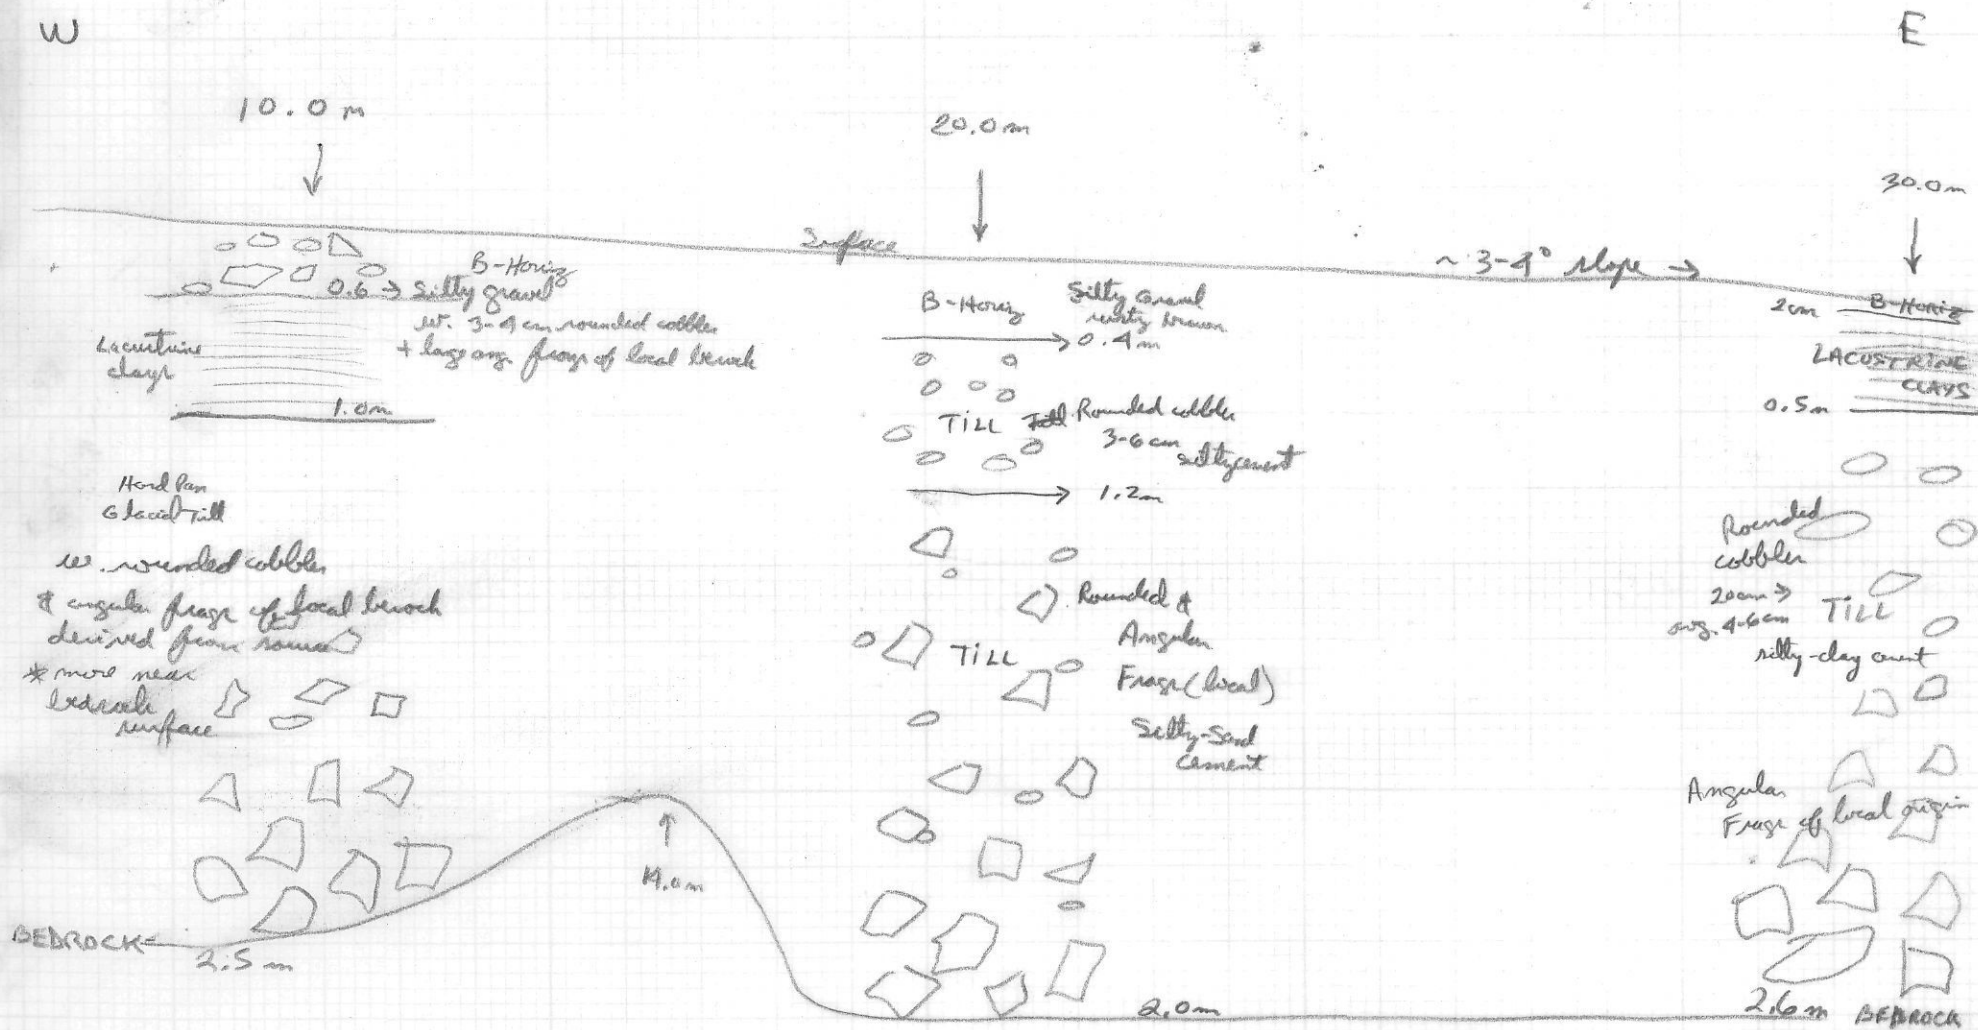 W
E
10.0 m
20.0 m
30.0 m
Surface
~ 3-4° slope →
B-Horiz
0.6 → Silty gravel
w. 3-4 cm rounded cobbles
+ large ang. frags of local
Lacustrine
clays
1.0m
Hard Pan
Glacial Till
w. rounded cobbles
angular frags of local
derived from source
* more near
bedrock
surface
BEDROCK
2.5 m
14.0m
B-Horiz
Silty Gravel
rusty brown
0.4 m
TILL
Rounded cobbles
3-6 cm
silty cement
1.2m
TILL
Rounded &
Angular
Frags (local)
Silty-Sand
Cement
2.0m
2cm
B-Horiz
LACUSTRINE
CLAYS
0.5m
Rounded
cobbles
20cm →
avg. 4-6cm
TILL
silty-clay cement
Angular
Frags of local origin
2.6 m
BEDROCK